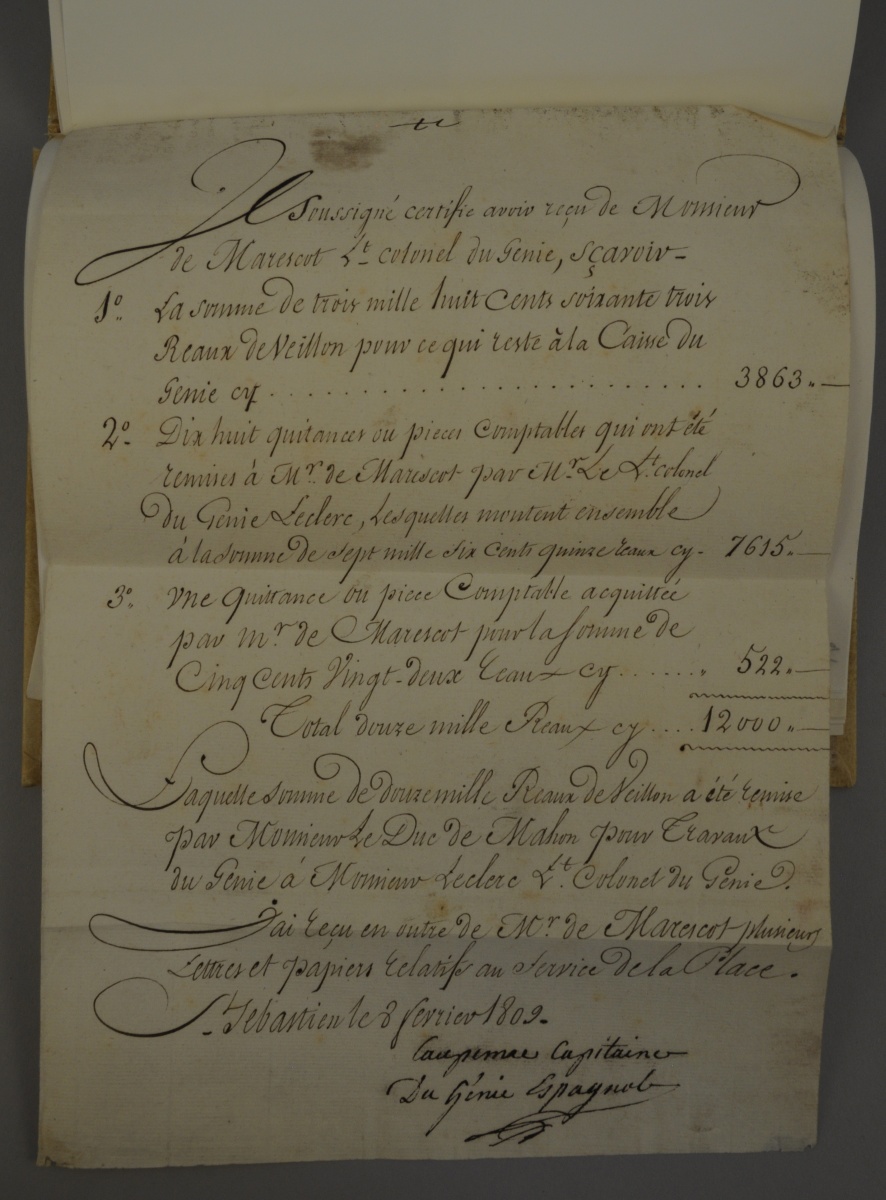 Je Soussigné certifie avoir reçu de Monsieur
de Marescot Lt. colonel du Genie, sçavoir-
1º. La somme de trois mille huit Cents soixante trois
Reaux de Veillon pour ce qui reste à la Caisse du
Genie cy . . . . . . . . . . . . . . . . . . . . 3863.. —
2º. Dix huit quitances ou pieces Comptables qui ont été
remises à Mr. de Marescot par Mr. Le Lt. colonel
du Genie Leclerc, Lesquelles montent ensemble
à la somme de Sept mille Six Cents quinze reaux cy- 7615.. —
3º. Une Quittance ou piece Comptable acquittée
par mr. de Marescot pour la Somme de
Cinq Cents Vingt-deux reaux cy . . . . . . . 522.. —
Total douze mille Reaux cy . . . . 12000.. —
Laquelle somme de douze mille Reaux de Veillon a été remise
par Monsieur Le Duc de Mahon pour Travaux
du Genie à Monsieur Leclerc Lt. Colonel du Genie.
J'ai reçu en outre de Mr. de Marescot plusieurs
Lettres et papiers relatifs au Service de la Place.
St. Sébastien le 8 fevrier 1809.
Capitaine
Du Génie Espagnol